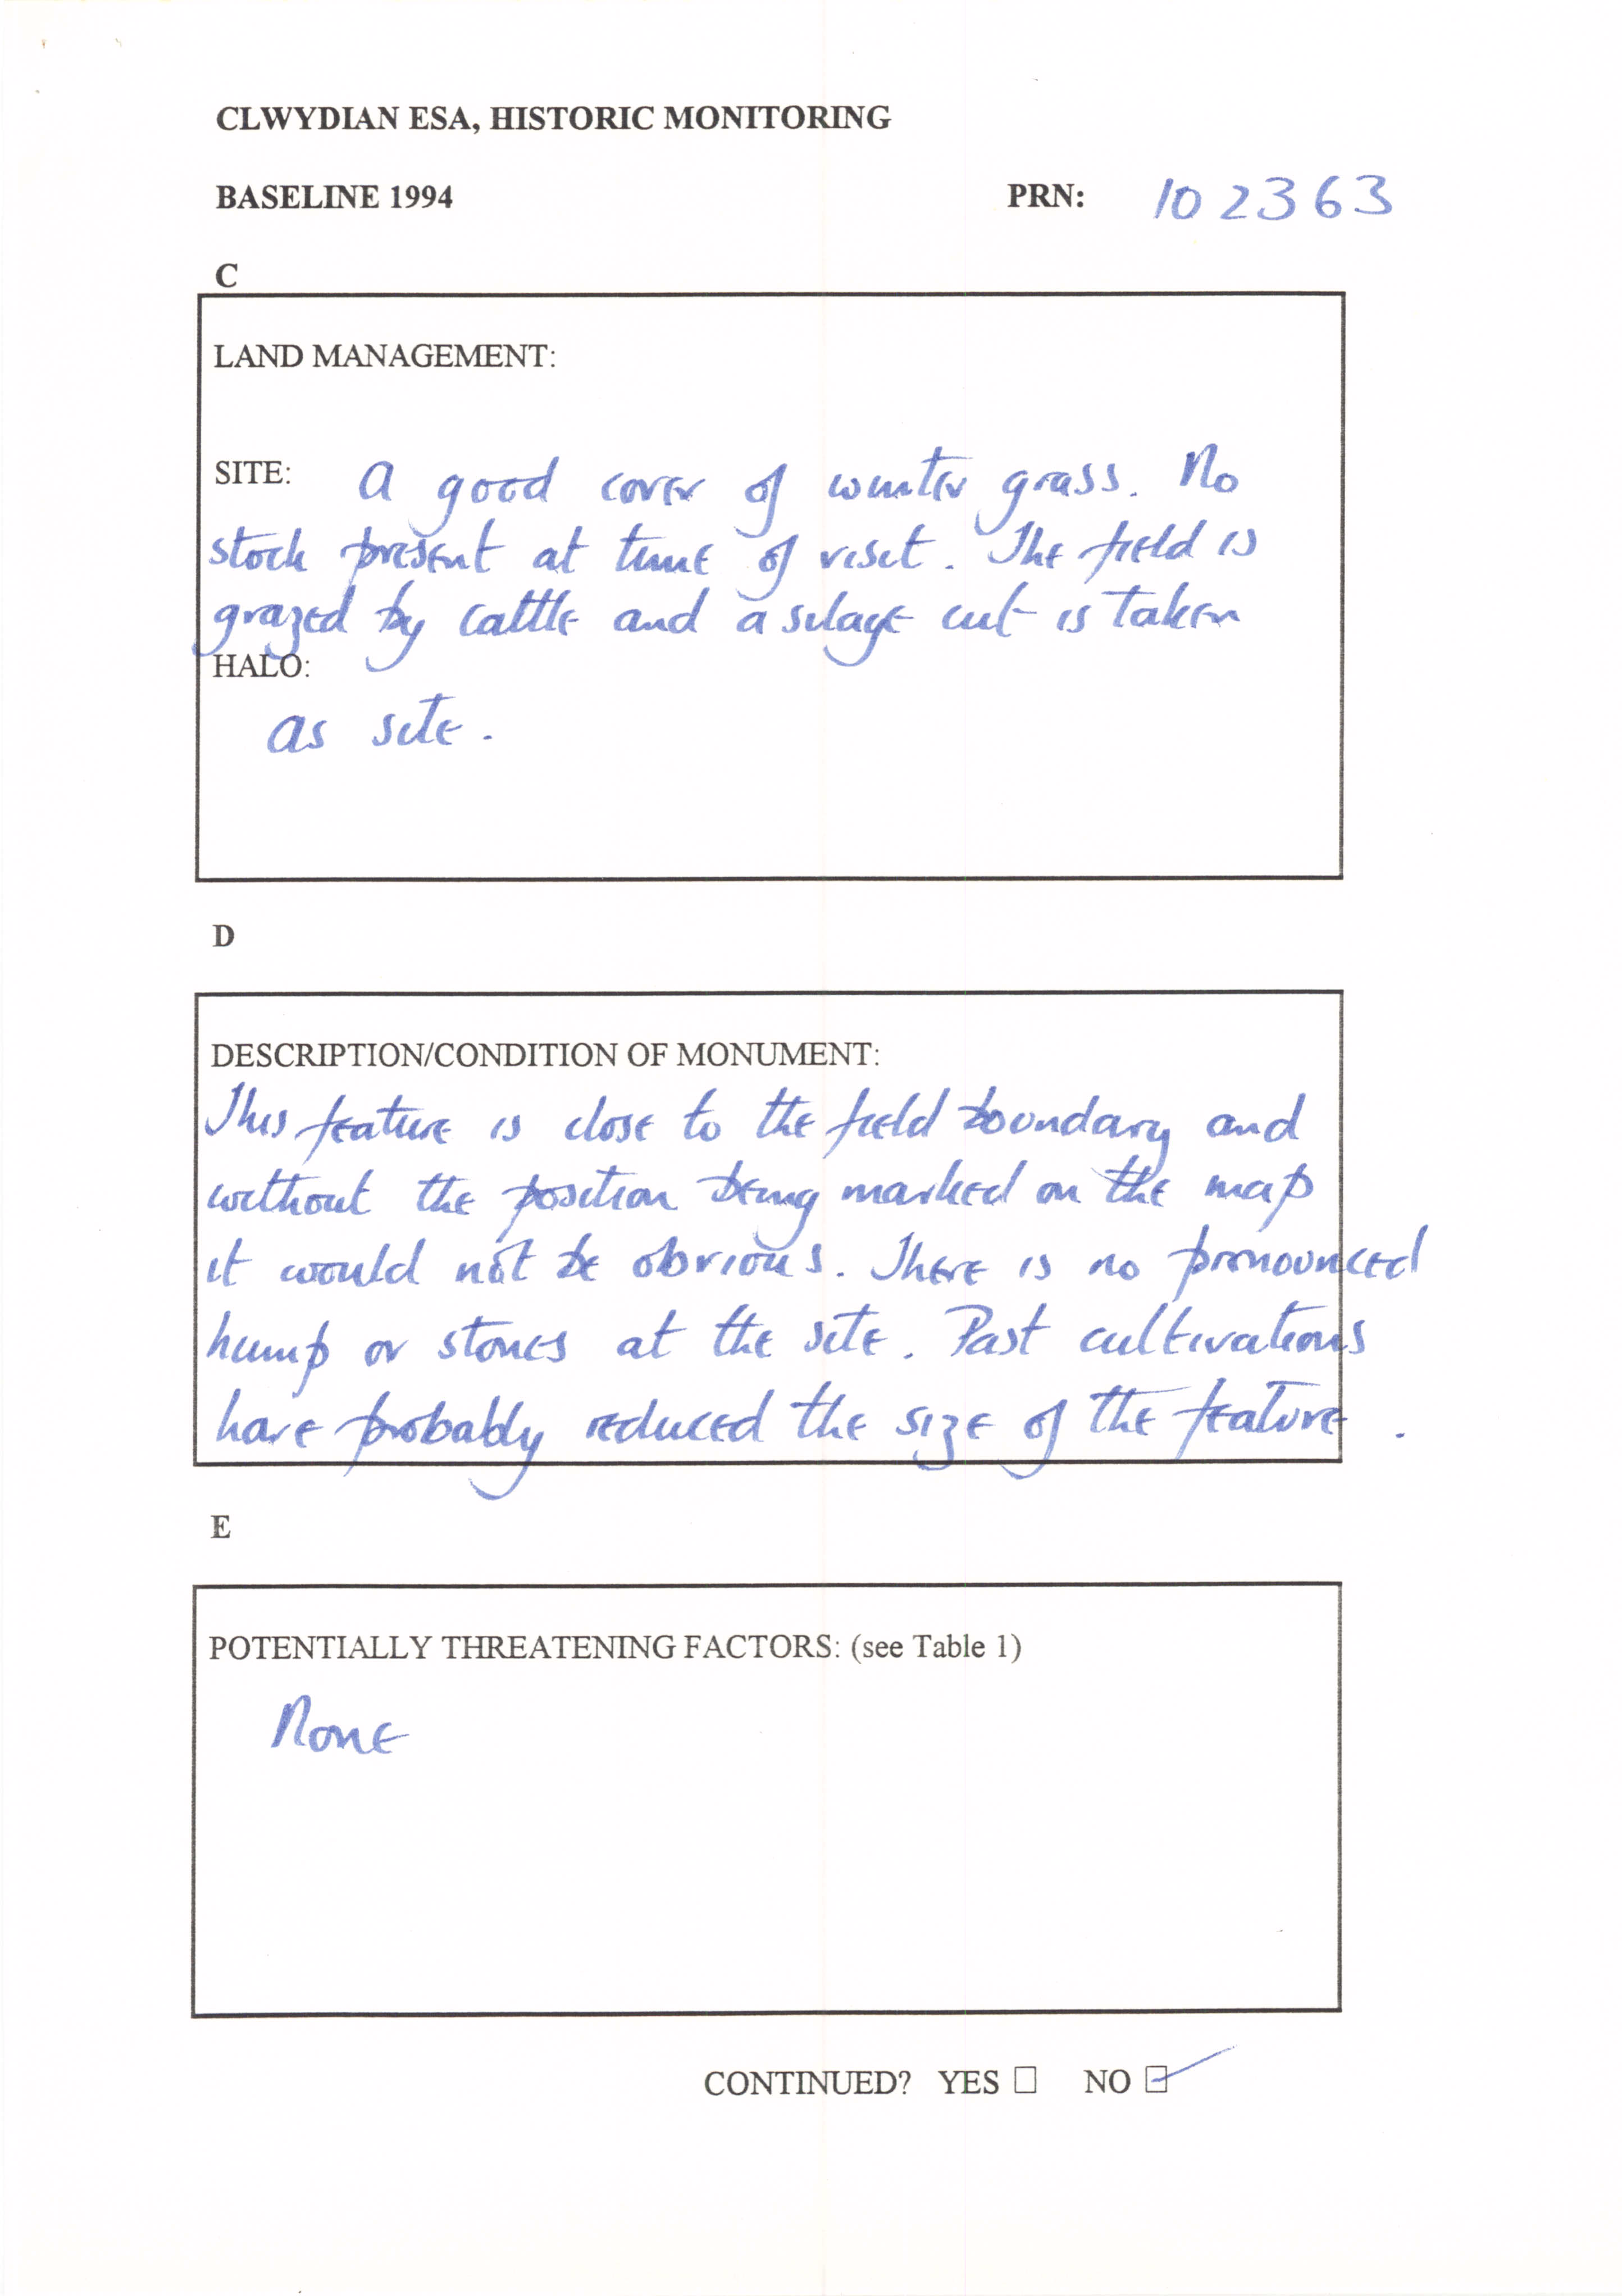 CLWYDIAN ESA, HISTORIC MONITORING
BASELINE 1994 PRN: 102363
C
LAND MANAGEMENT:
SITE: A good cover of winter grass. No
stock present at time of visit. The field is
grazed by cattle and a silage cut is taken
HALO:
as site.
D
DESCRIPTION/CONDITION OF MONUMENT:
This feature is close to the field boundary and
without the position being marked on the map
it would not be obvious. There is no pronounced
hump or stones at the site. Past cultivations
have probably reduced the size of the feature.
E
POTENTIALLY THREATENING FACTORS: (see Table 1)
None
CONTINUED? YES ☐ NO ☑